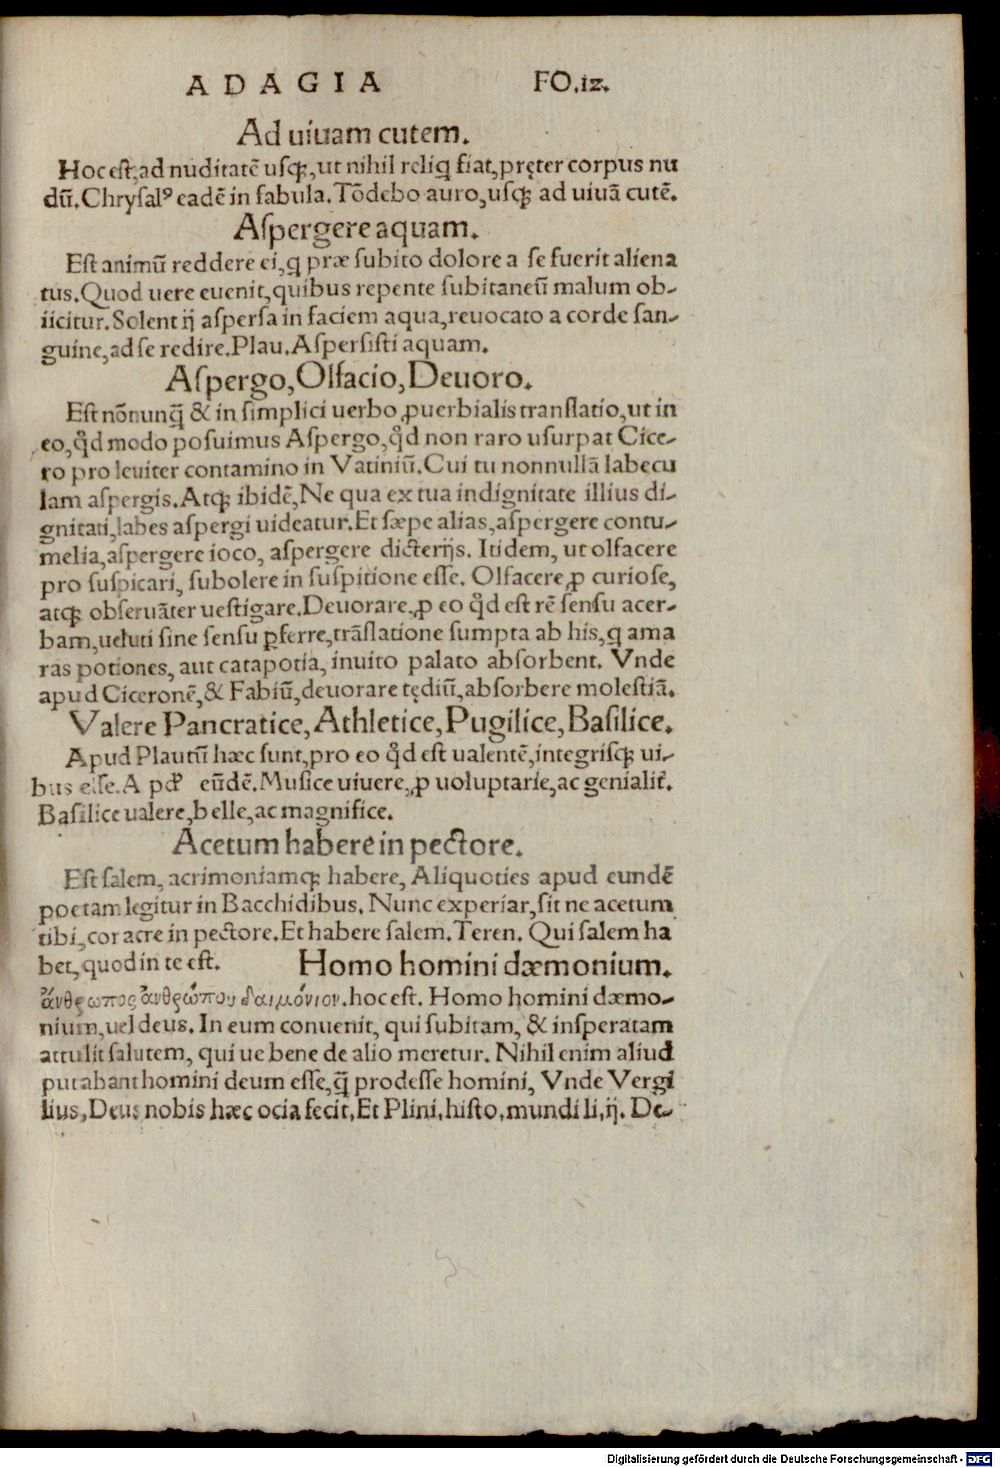 ADAGIA FO.iz.
Ad uiuam cutem.
Hoc est, ad nuditatē usq̃, ut nihil reliq̄ fiat, pręter corpus nu
dū. Chrysalꝰ eadē in fabula. Tōdebo auro, usq̃ ad uiuā cutē.
Aspergere aquam.
Est animū reddere ei, q̄ præ subito dolore a se fuerit aliena
tus. Quod uere euenit, quibus repente subitaneū malum ob-
iicitur. Solent ij aspersa in faciem aqua, reuocato a corde san-
guine, ad se redire. Plau. Aspersisti aquam.
Aspergo, Olfacio, Deuoro.
Est nōnunq̄ & in simplici uerbo ꝓuerbialis translatio, ut in
eo, qd̛ modo posuimus Aspergo, qd̛ non raro usurpat Cice-
ro pro leuiter contamino in Vatiniū. Cui tu nonnullā labecu
lam aspergis. Atq̃ ibidē, Ne qua ex tua indignitate illius di-
gnitati, labes aspergi uideatur. Et sæpe alias, aspergere contu-
melia, aspergere ioco, aspergere dicterijs. Itidem, ut olfacere
pro suspicari, subolere in suspitione esse. Olfacere ꝓ curiose,
atq̃ obseruāter uestigare. Deuorare, ꝓ eo qd̛ est rē sensu acer-
bam, ueluti sine sensu ꝑferre, trāslatione sumpta ab his, q̄ ama
ras potiones, aut catapotia, inuito palato absorbent. Vnde
apud Ciceronē, & Fabiū, deuorare tędiū, absorbere molestiā.
Valere Pancratice, Athletice, Pugilice, Basilice.
Apud Plautū hæc sunt, pro eo qd̛ est ualentē, integrisq̃ ui-
bus esse. A pd̛ eūdē. Musice uiuere, ꝓ uoluptarie, ac genialit̛.
Basilice ualere, belle, ac magnifice.
Acetum habere in pectore.
Est salem, acrimoniamq̃ habere, Aliquoties apud eundē
poetam legitur in Bacchidibus. Nunc experiar, sit ne acetum
tibi, cor acre in pectore. Et habere salem. Teren. Qui salem ha
bet, quod in te est. Homo homini dæmonium.
ἄνθρωπος ἀνθρώπου δαιμόνιον. hoc est. Homo homini dæmo-
nium, uel deus. In eum conuenit, qui subitam, & insperatam
attulit salutem, qui ue bene de alio meretur. Nihil enim aliud
putabant homini deum esse, q̄ prodesse homini, Vnde Vergi
lius, Deus nobis hæc ocia fecit, Et Plini, histo, mundi li, ij. De-
Digitalisierung gefördert durch die Deutsche Forschungsgemeinschaft - DFG